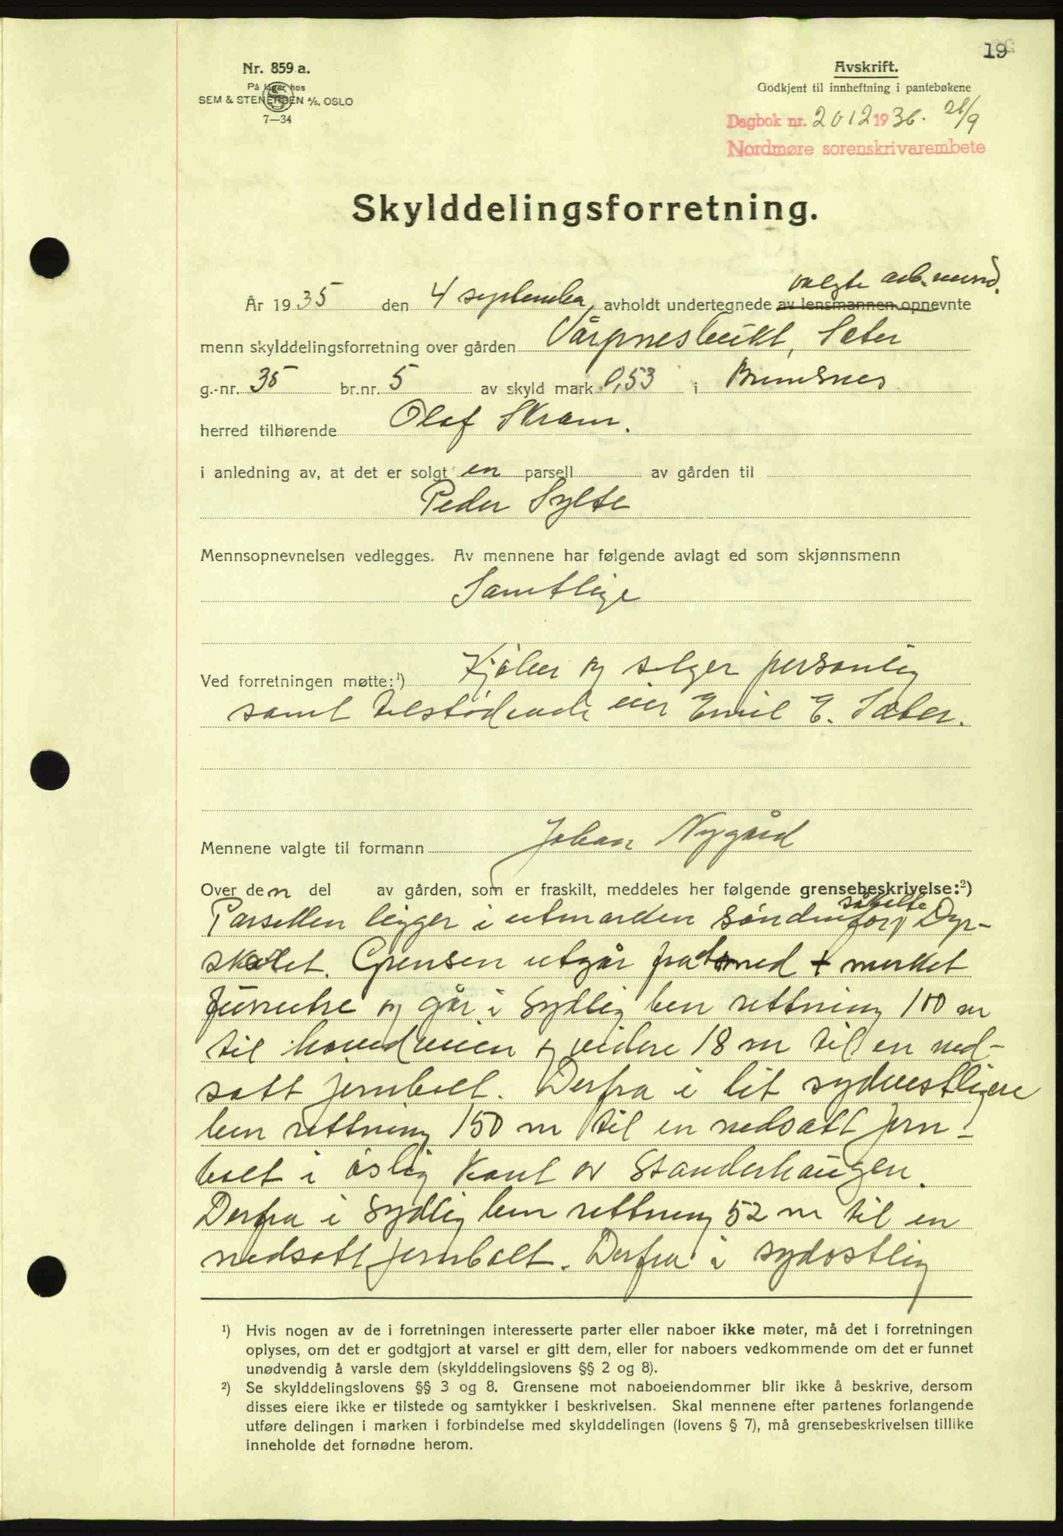 19
Nr. 859 a.
På lager hos
SEM & STENERSEN A/S, OSLO
7—34
Avskrift.
Godkjent til innheftning i pantebøkene
Dagbok nr. 2012 1936. 21/9
Nordmøre sorenskrivarembete
Skylddelingsforretning.
valgte
År 1935 den 4 september avholdt undertegnede av lensmannen opnevnte
menn skylddelingsforretning over gården Vårpnesbukt, Sæter
g.-nr. 35 br.nr. 5 av skyld mark 0,53 i Bremsnes
herred tilhørende Olaf Skram.
i anledning av, at det er solgt en parsell av gården til
Peder Sylte
Mennsopnevnelsen vedlegges. Av mennene har følgende avlagt ed som skjønnsmenn
Samtlige
Ved forretningen møtte:¹) Kjøber og selger personlig
samt tilstødende eier Emil E. Sæter.
Mennene valgte til formann Johan Nygård
Over den del av gården, som er fraskilt, meddeles her følgende grensebeskrivelse:²)
såkalte
Parsellen ligger i utmarken søndenfor Dyr-
skaret. Grensen utgår fra med + merket
furutre og går i sydlig ben rettning 100 m
til hovedveien og videre 18 m til en ned-
satt jernbolt. Derfra i lit sydvestligere
ben rettning 150 m til en nedsatt jern-
bolt i østlig kant av Standerhaugen.
Derfra i sydlig ben rettning 52 m til en
nedsatt jernbolt. Derfra i sydostlig
¹) Hvis nogen av de i forretningen interesserte parter eller naboer ikke møter, må det i forretningen
oplyses, om det er godtgjort at varsel er gitt dem, eller for naboers vedkommende om det er funnet
unødvendig å varsle dem (skylddelingslovens §§ 2 og 8).
²) Se skylddelingslovens §§ 3 og 8. Grensene mot naboeiendommer blir ikke å beskrive, dersom
disses eiere ikke er tilstede og samtykker i beskrivelsen. Skal mennene efter partenes forlangende
utføre delingen i marken i forbindelse med skylddelingen (lovens § 7), må grensebeskrivelsen tillike
inneholde det fornødne herom.